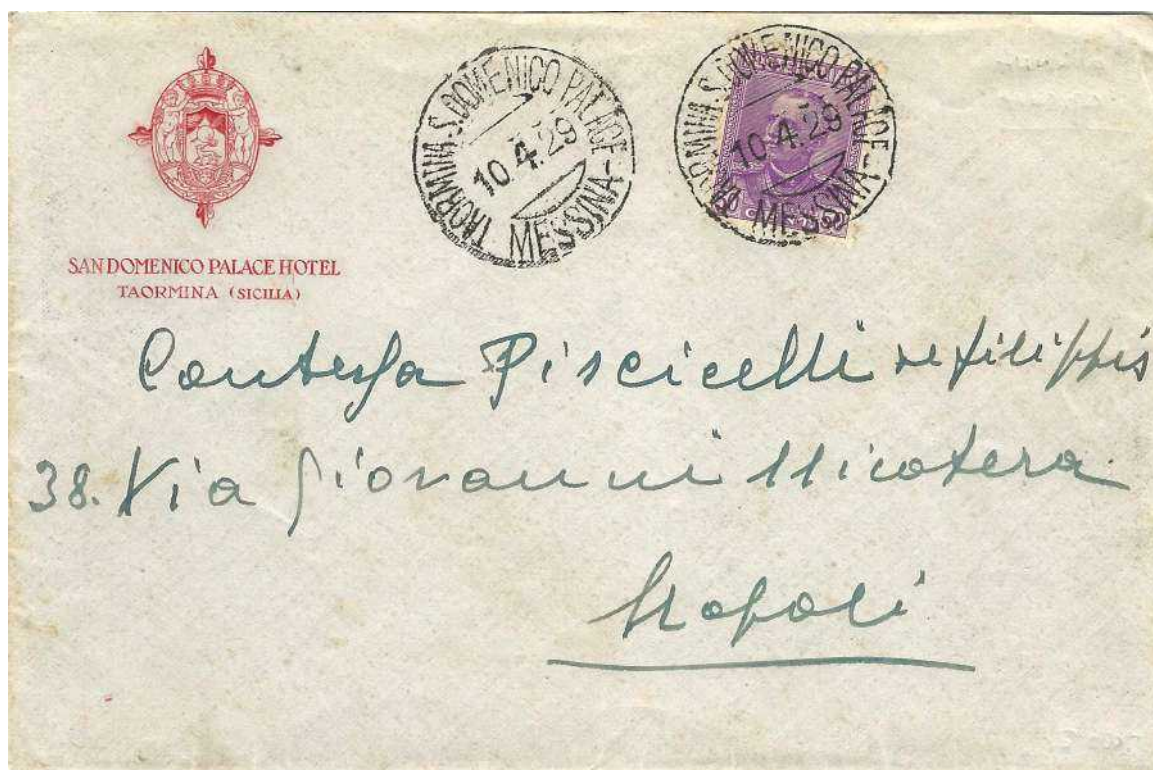 SAN DOMENICO PALACE HOTEL
TAORMINA (SICILIA)
TAORMINA S.DOMENICO PALACE - MESSINA -
10.4.29
TAORMINA S.DOMENICO PALACE - MESSINA -
10.4.29
50
Contessa Piscicelli de filippis
38. Via Giovanni Nicotera
Napoli